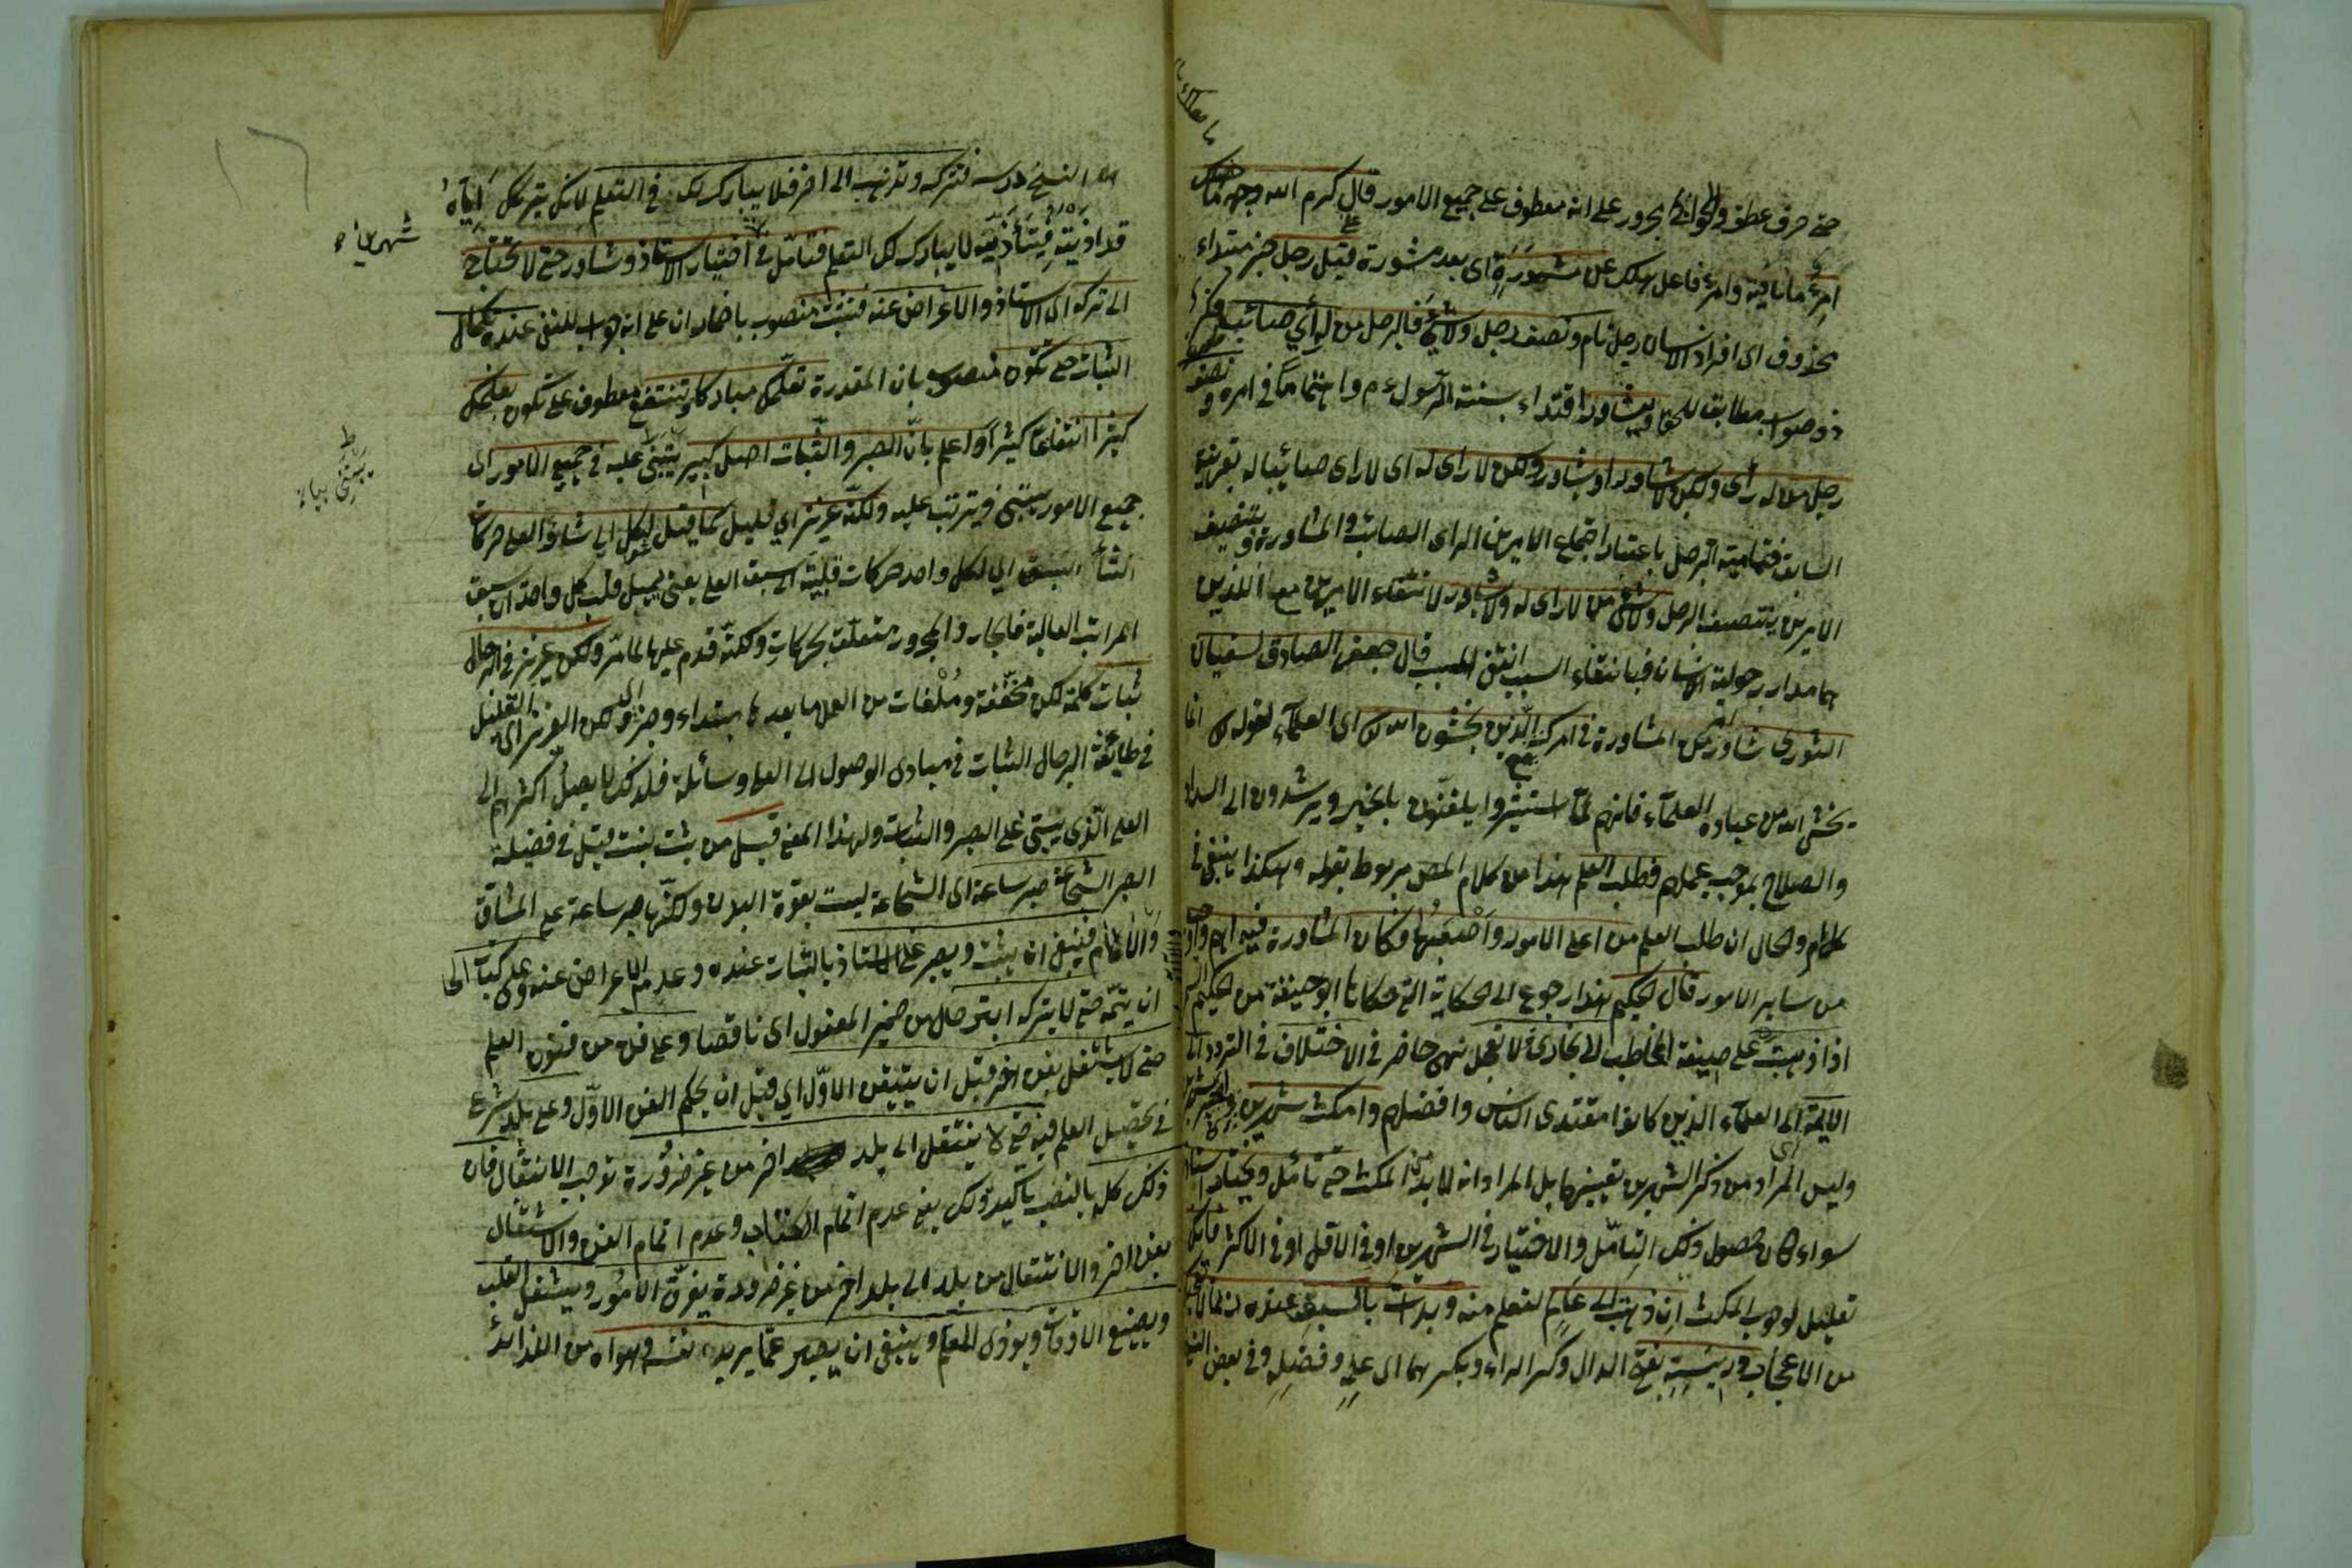 حتى حرف عطف والحوائج مجرور على انه معطوف على جميع الامور قال على كرم الله وجهه ما هلك
امرؤ ما نافية وامرؤ فاعل هلك عن مشورة اى بعد مشورة قيل رجل خبر مبتداء
محذوف اى افراد الانسان رجل تام ونصف رجل ولا شئ فالرجل من له رأي صائب
ذو صواب مطابق للحق ويشاور اقتداء بسنة الرسول ءم واهتماما فى امره ونصف
رجل من له رأى ولكن لا يشاور او يشاور ولكن لا راى له اى لا راى صائبا له بقرينة
السابق فتمامية الرجل باعتبار اجتماع الامرين الراى الصائب والمشاورة وبتنصيف
الامرين يتنصف الرجل ولا شئ من لا راى له ولا يشاور لانتفاء الامرين معا اللذين
هما مدار رجولية الانسان فبانتفاء السبب انتفى المسبب قال جعفر الصادق لسفيان
الثورى شاور امر من المشاورة فى امرك الذين يخشون الله اى العلماء لقوله تع انما
يخشى الله من عباده العلماء فانهم لما استشيروا يلقنون بالخير ويرشدون الى السداد
والصلاح بموجب علمهم فطلب العلم هذا من كلام المص مربوط بقوله وهكذا ينبغى فى
والحال ان طلب العلم من اعلى الامور واصعبها فكان المشاورة فيه اهم واوجب
من ساير الامور قال الحكيم هذا رجوع الى الحكاية التى حكاها ابو حنيفة من الحكيم
اذا ذهبت على صيغة المخاطب الى بخارى لا تعجل نهى حاضر فى الاختلاف فى التردد الى
الائمة اى الى العلماء الذين كانوا مقتدى الناس وافضلهم وامكث شهرين
وليس المراد من ذكر الشهرين تعيينهما بل المراد انه لا بد من المكث حتى تتأمل وتختار استاذا
سواء كان حصول ذلك التامل والاختيار فى الشهرين او فى الاقل او فى الاكثر فانك
تعليل لوجوب المكث ان ذهبت الى عالم لتعلم منه وبدأت بالسبق عنده
من الاعجاب درسه بفتح الدال وكسر الراء وبكسرهما اى علمه وفضله وفى بعض النسخ
النسخ درسه فتتركه وتذهب الى اخر فلا يبارك لك فى التعلم لانك بتركك اياه
قد اذيته فبتأذيه لا يبارك لك التعلم فتأمل فى اختيار الاستاذ وشاور حتى لا تحتاج
الى تركه اى الاستاذ والاعراض عنه فتثبت منصوب باضمار ان على انه جواب للنفى عنده كمال
الثبات حتى تكون منصوب بان المقدرة تعلمك مباركا وتنتفع معطوف على تكون بعلمك
كثيرا انتفاعا كثيرا واعلم بان الصبر والثبات اصل كبير يبتنى عليه فى جميع الامور اى
جميع الامور يبتنى ويترتب عليه ولكنه عزيز اي قليل كما قيل لكل الى شأو العلى حركات
الشأو السبق اي لكل واحد حركات قلبية الى سبق العلى يعنى يميل قلب كل واحد ان سبق
المراتب العالية فالجار والمجرور متعلق بحركات ولكنه قدم عليها لما مر ولكن عزيز فى الرجال
ثبات كلمة لكن مخففة وملغات من العمل ما بعدها مبتداء وخبر اى ولكن العزيز اى القليل
فى طائفة الرجال الثبات فى مبادى الوصول الى العلى وسائله فلذلك لا يصل اكثرهم الى
العلى الذى يبتنى على الصبر والثبات ولهذا المعنى قيل من ثبت نبت قيل فى فضيلة
الصبر الشجاعة صبر ساعة اى الشجاعة ليست بقوة البدن ولكنها صبر ساعة على المشاق
والآلام فينبغى ان يثبت ويصبر على الاستاذ بالثبات عنده وعدم الاعراض عنه وعلى كتاب الى
ان يتمه حتى لا يتركه ابتر حال من ضمير المفعول اى ناقصا وعلى فن من فنون العلم
حتى لا يشتغل بفن اخر قبل ان يتيقن الاول اي قبل ان يحكم الفن الاول وعلى بلد شرع
فى تحصيل العلم فيه حتى لا ينتقل الى بلد اخر من غير ضرورة توجب الانتقال فان
ذلك كله بالنصب تاكيد ذلك يعنى عدم اتمام الكتاب وعدم اتمام الفن والاشتغال
بفن اخر والانتقال من بلد الى بلد اخر من غير ضرورة يفرق الامور ويشغل القلب
ويضيع الاوقات ويؤذى المعلم وينبغى ان يصبر عما يريده نفسه وهواه من اللذائذ